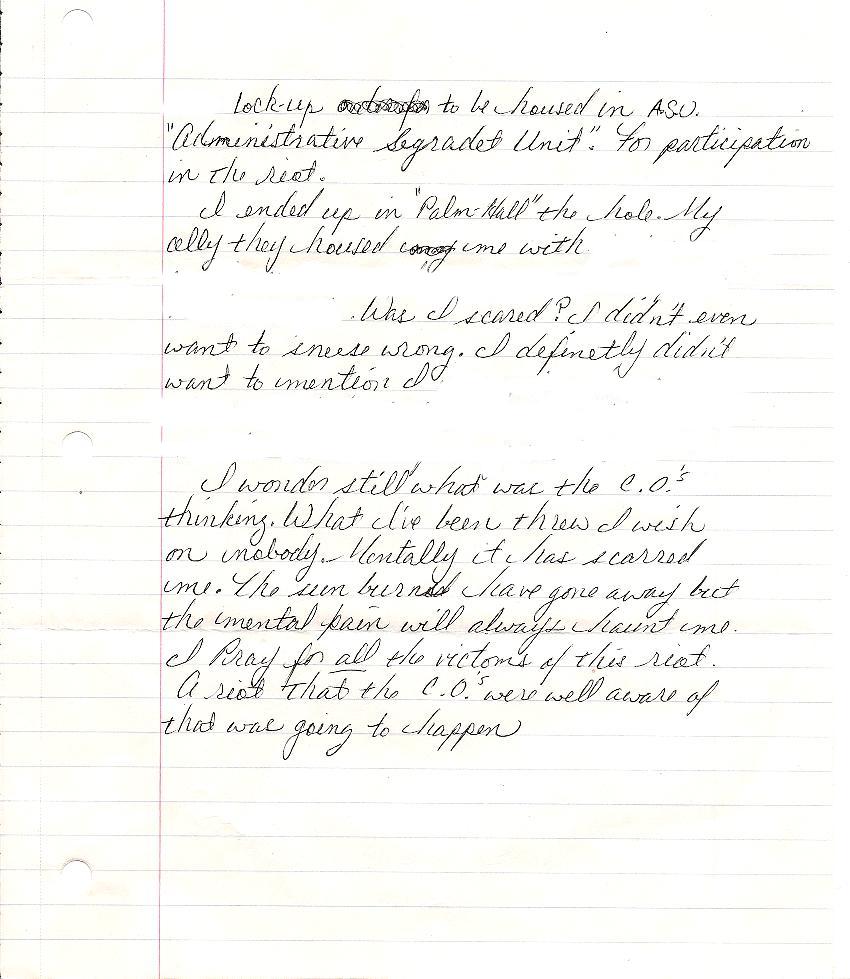 lock-up to be housed in ASU.
"Administrative Segradet Unit". For participation
in the riot.
I ended up in "Palm-Hall" the hole. My
celly they housed me with
Was I scared? I didn't even
want to sneese wrong. I definetly didn't
want to mention I
I wonder still what was the C.O.'s
thinking. What I've been threw I wish
on nobody. Mentally it has scarred
me. The sun burns have gone away but
the mental pain will always haunt me.
I Pray for all the victoms of this riot.
A riot that the C.O.'s were well aware of
that was going to happen